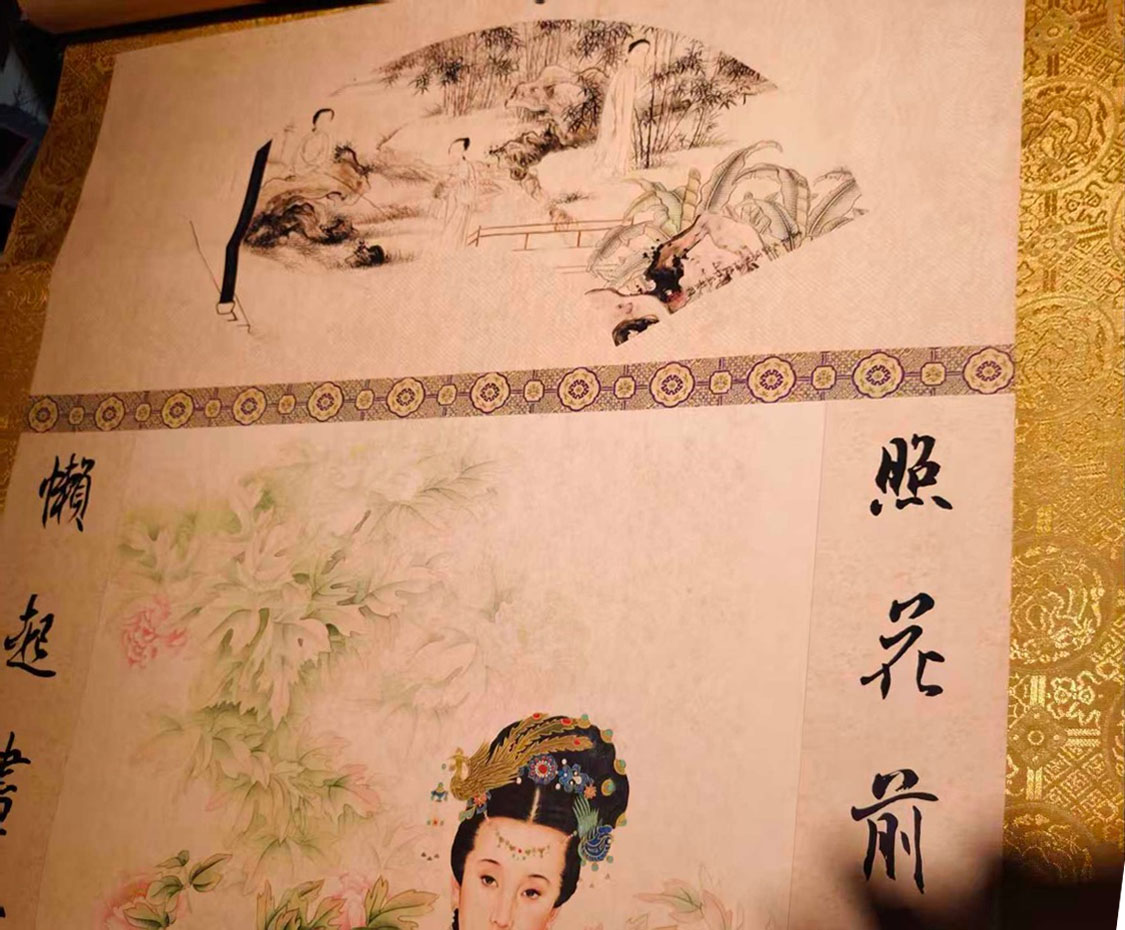 照花前
懶起畫